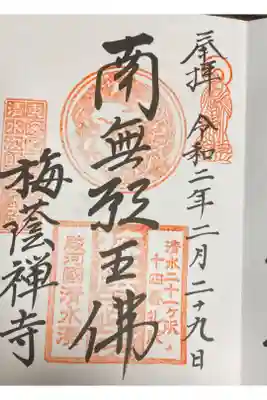 奉拝 令和二年二月二十九日
清水二十一ヶ所
十四番札所
南無願王佛
駿河國清水港
梅蔭禅寺